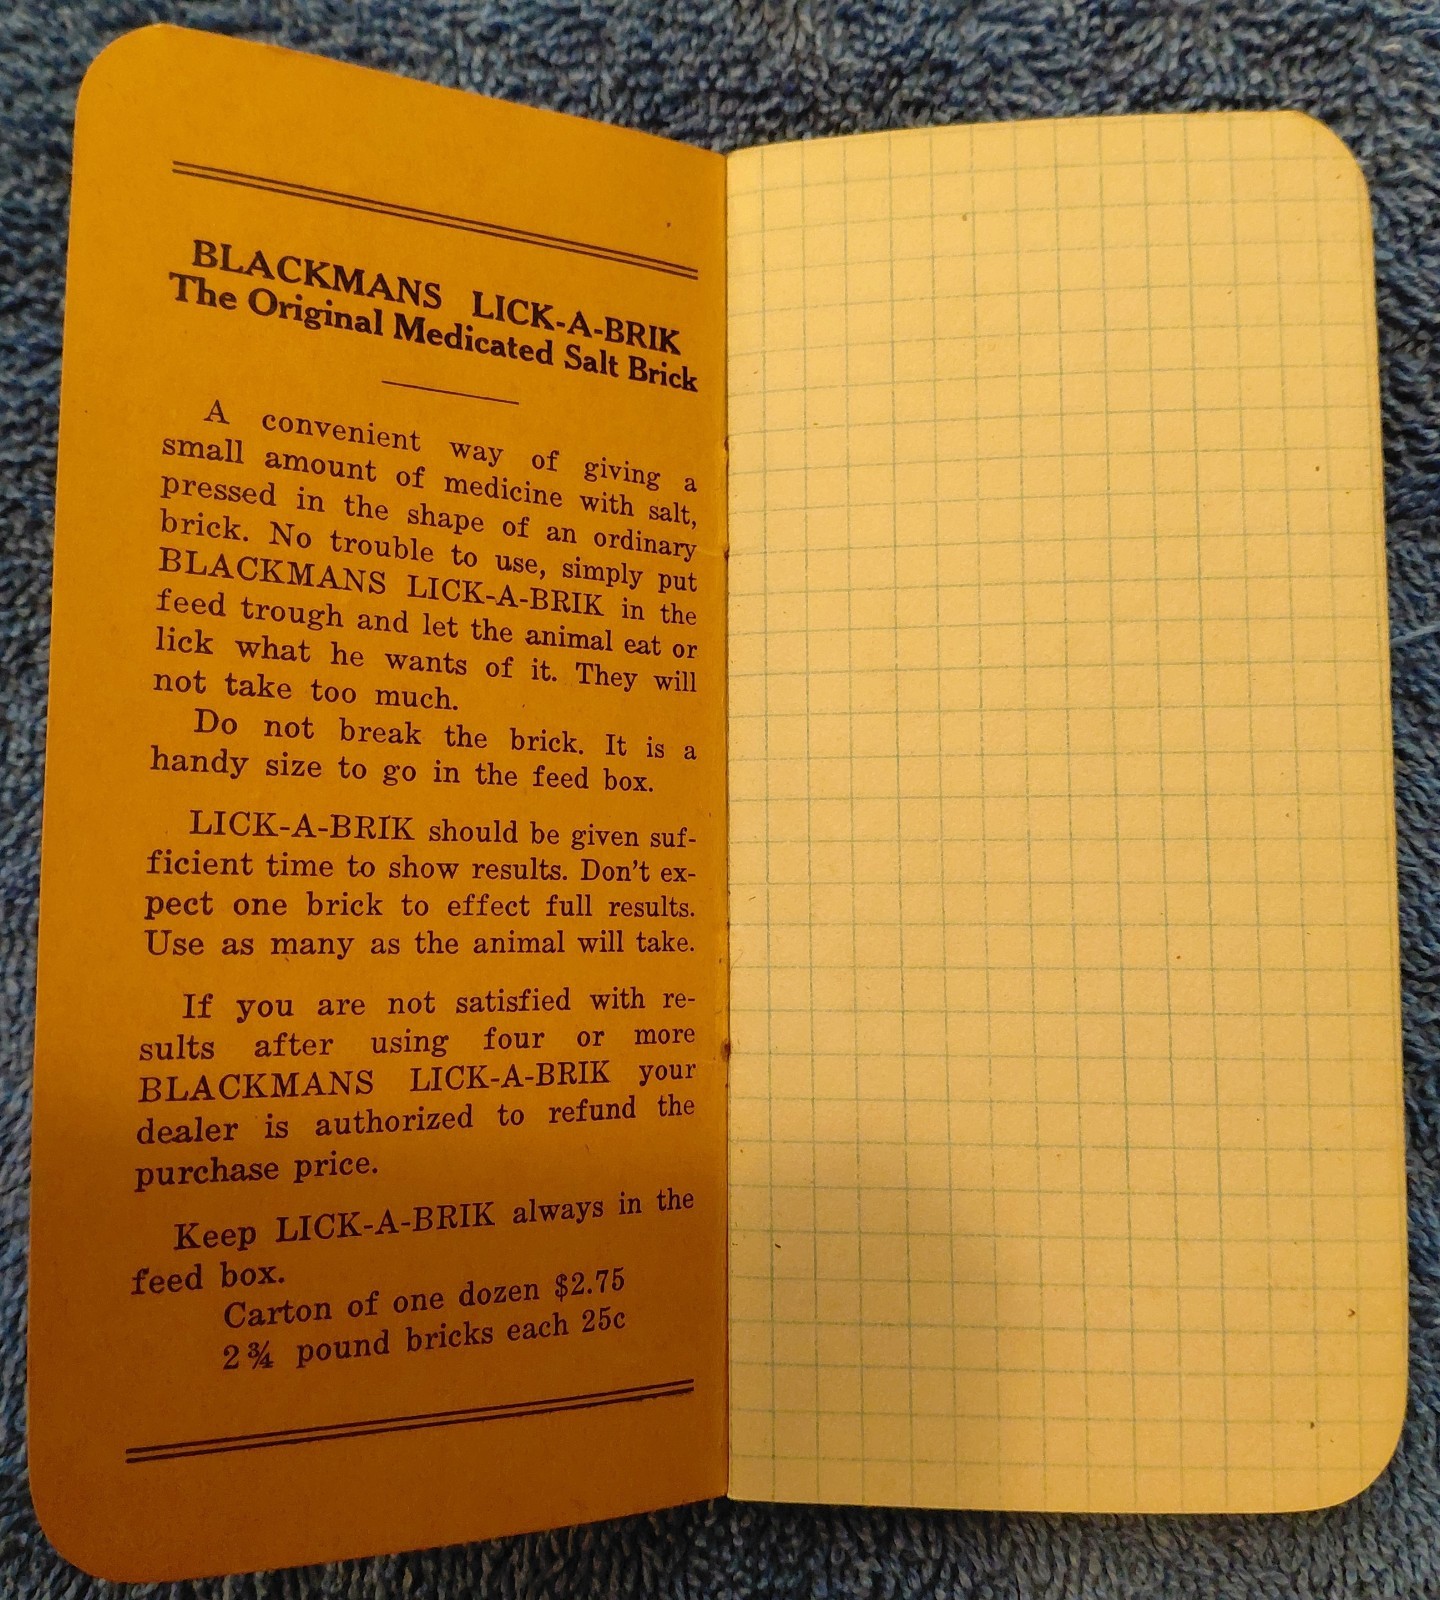 BLACKMANS LICK-A-BRIK
The Original Medicated Salt Brick
A convenient way of giving a
small amount of medicine with salt,
pressed in the shape of an ordinary
brick. No trouble to use, simply put
BLACKMANS LICK-A-BRIK in the
feed trough and let the animal eat or
lick what he wants of it. They will
not take too much.
Do not break the brick. It is a
handy size to go in the feed box.
LICK-A-BRIK should be given suf-
ficient time to show results. Don't ex-
pect one brick to effect full results.
Use as many as the animal will take.
If you are not satisfied with re-
sults after using four or more
BLACKMANS LICK-A-BRIK your
dealer is authorized to refund the
purchase price.
Keep LICK-A-BRIK always in the
feed box.
Carton of one dozen $2.75
2 ¾ pound bricks each 25c